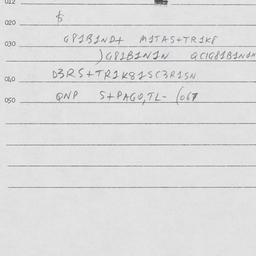 012
020 $
030 G81B1ND+ M1TAS+TR1K8
)G81B1N1N
040 D3RS+TR1K81SC3R1SN
050 QNP S+PAGO,TL- (067